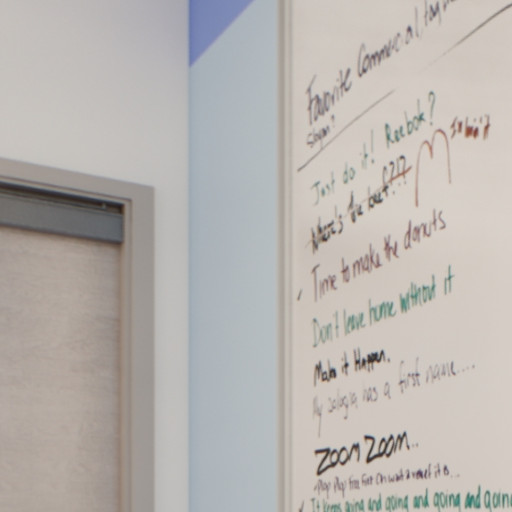 Favorite Commercial,
Slogan?
Just do it! Reebok?
Where's the beef?!?
M
Time to make the donuts
Don't leave home without it
Make it Happen.
My bologna has a first name....
ZOOM ZOOM..
Plop Plop Fizz Fizz Oh what a relief it is...
It keeps going and going and going and going